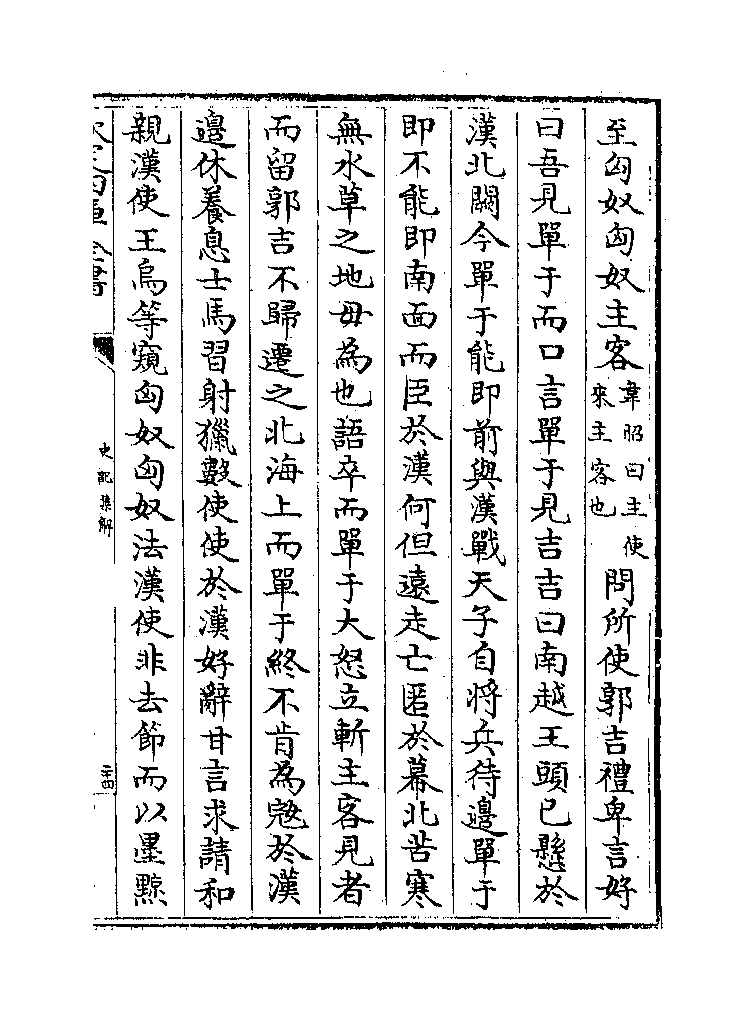 至匈奴匈奴主客韋昭曰主使來主客也問所使郭吉禮卑言好
曰吾見單于而口言單于見吉吉曰南越王頭已懸於
漢北闕今單于能即前與漢戰天子自將兵待邊單于
即不能即南面而臣於漢何但遠走亡匿於幕北苦寒
無水草之地毋為也語卒而單于大怒立斬主客見者
而留郭吉不歸遷之北海上而單于終不肯為寇於漢
邊休養息士馬習射獵數使使於漢好辭甘言求請和
親漢使王烏等窺匈奴匈奴法漢使非去節而以墨黥
欽定四庫全書
史記集解
二十四